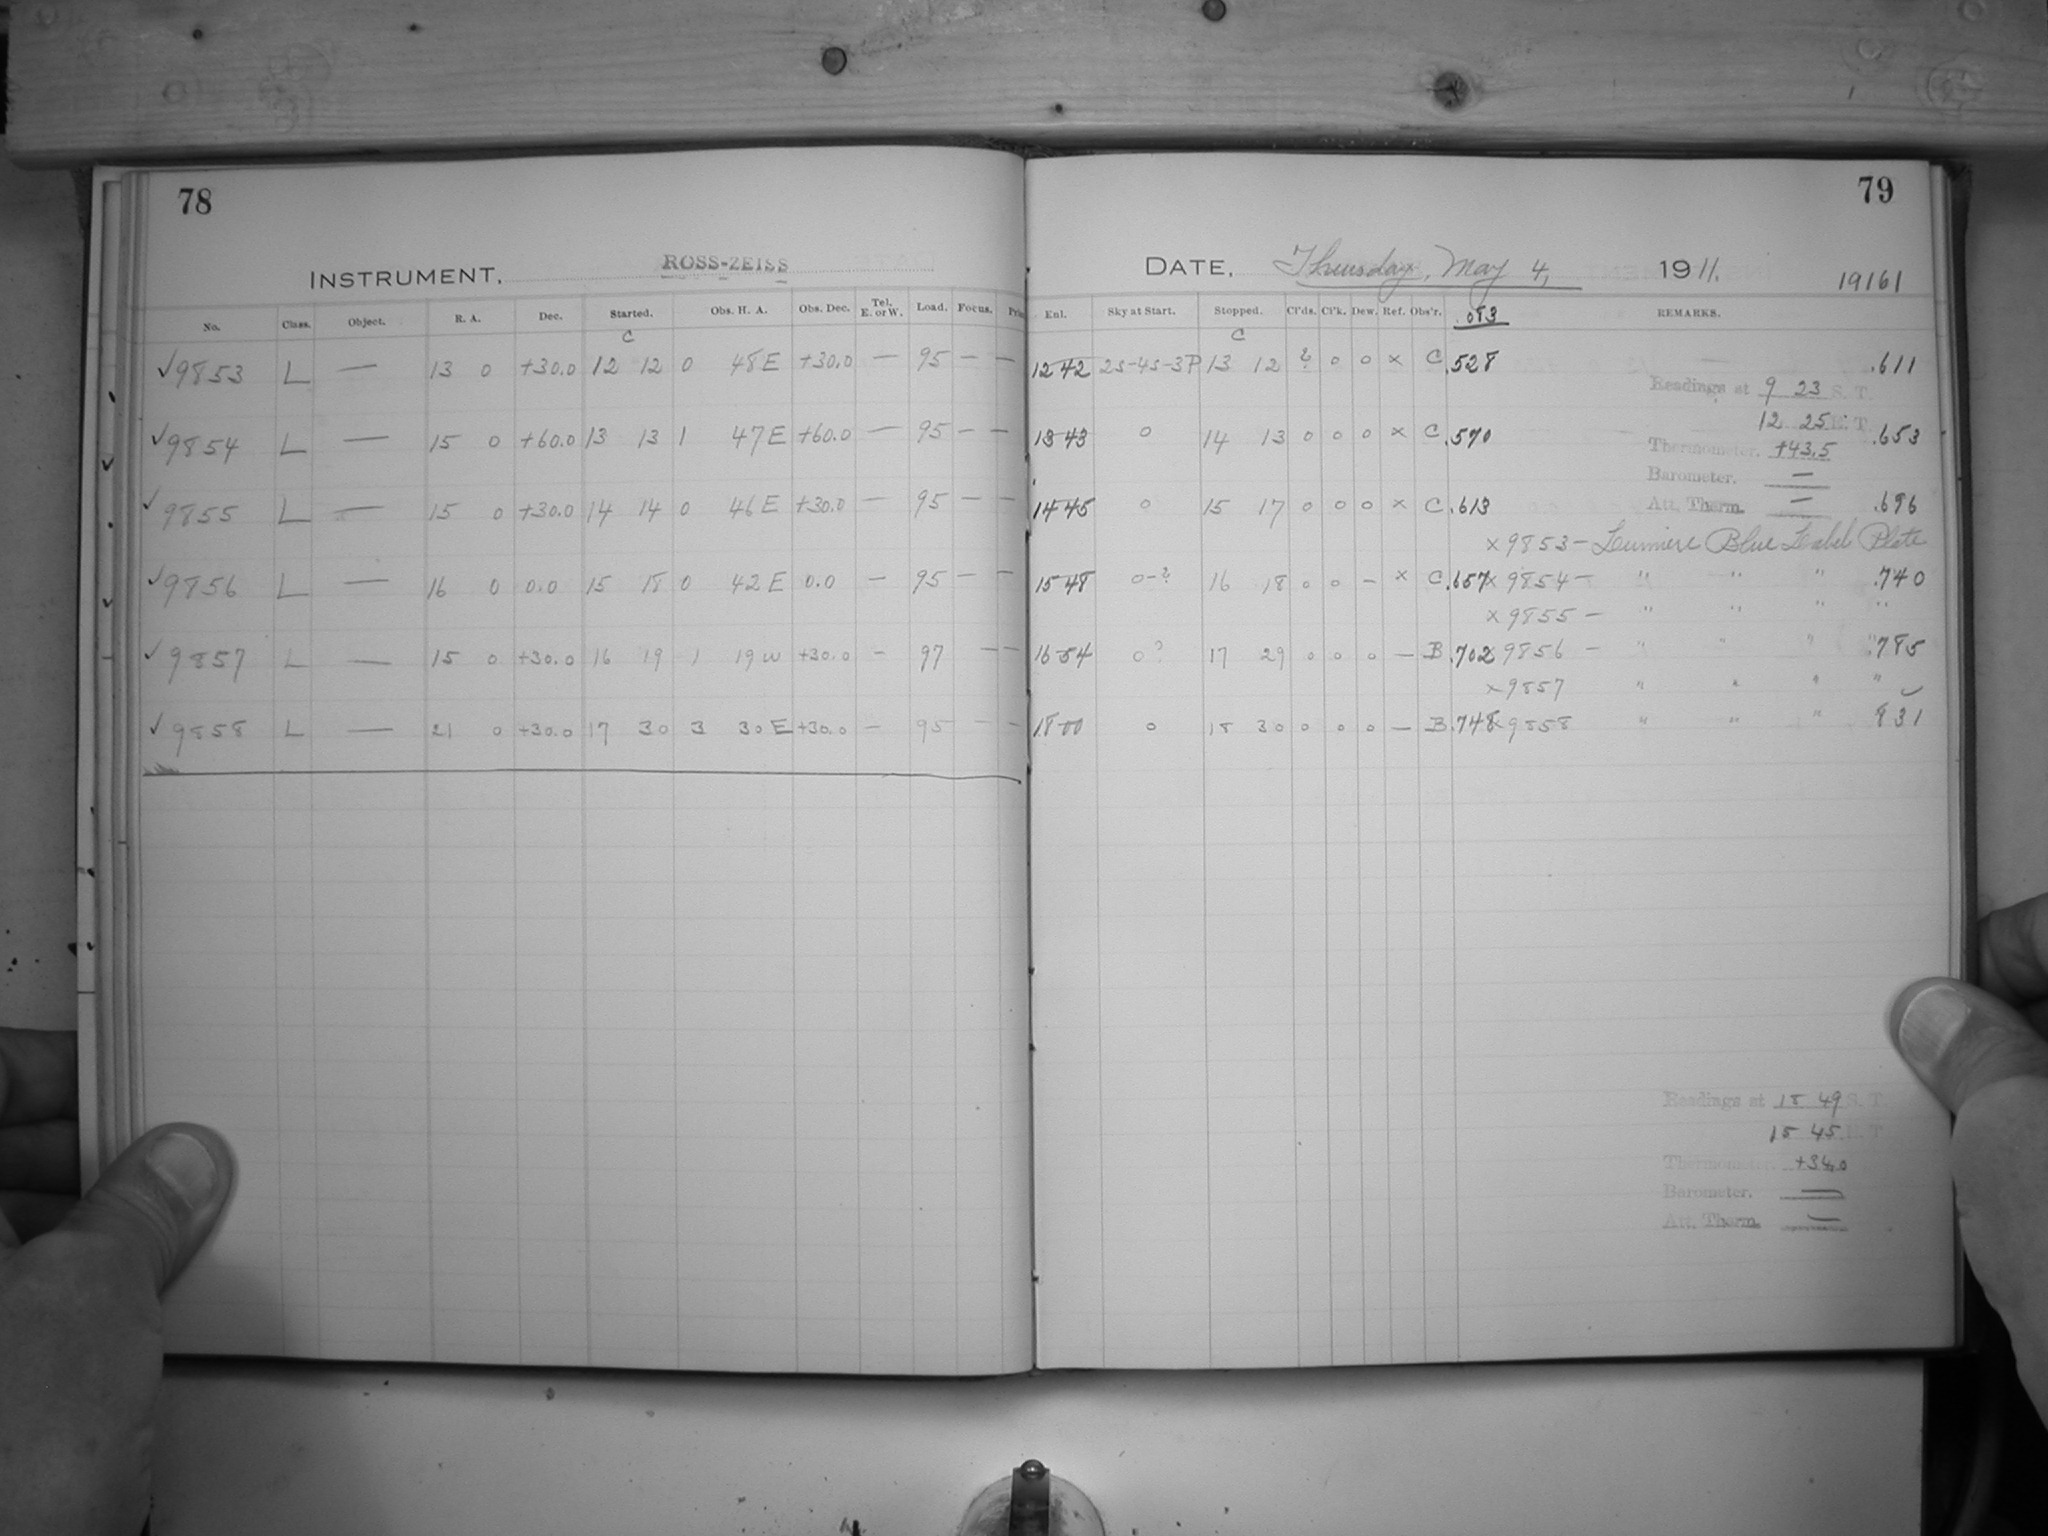 78
INSTRUMENT, ROSS-ZEISS
No. Class. Object. R. A. Dec. Started. Obs. H. A. Obs. Dec. Tel. E. or W. Load. Focus.
C
✓9853 L — 13 0 +30.0 12 12 0 48 E +30.0 — 95 — —
✓9854 L — 15 0 +60.0 13 13 1 47 E +60.0 — 95 — —
✓9855 L — 15 0 +30.0 14 14 0 46 E +30.0 — 95 — —
✓9856 L — 16 0 0.0 15 18 0 42 E 0.0 — 95 — —
✓9857 L — 15 0 +30.0 16 19 1 19 W +30.0 — 97 — —
✓9858 L — 21 0 +30.0 17 30 3 30 E +30.0 — 95 — —
79
DATE, Thursday, May 4, 1911.
19161
Enl. Sky at Start. Stopped. Cl'ds. Cl'k. Dew. Ref. Obs'r. .083 REMARKS.
C
12 42 2s-4s-3P 13 12 ? 0 0 × C .528 .611
Readings at 9 23 S. T.
12 25 E. T.
13 43 0 14 13 0 0 0 × C .570 .653
Thermometer. +43.5
Barometer. —
Att. Therm. —
14 45 0 15 17 0 0 0 × C .613 .696
×9853 — Lumiere Blue Label Plate
15 48 0-? 16 18 0 0 — × C .657 ×9854 — " " " .740
×9855 — " " " "
16 54 0? 17 29 0 0 0 — B .702 ×9856 — " " " .785
×9857 " " " "
18 00 0 18 30 0 0 0 — B .748 ×9858 " " " 831
Readings at 18 49 S. T
15 45 E. T
Thermometer. +34.0
Barometer. —
Att. Therm. —